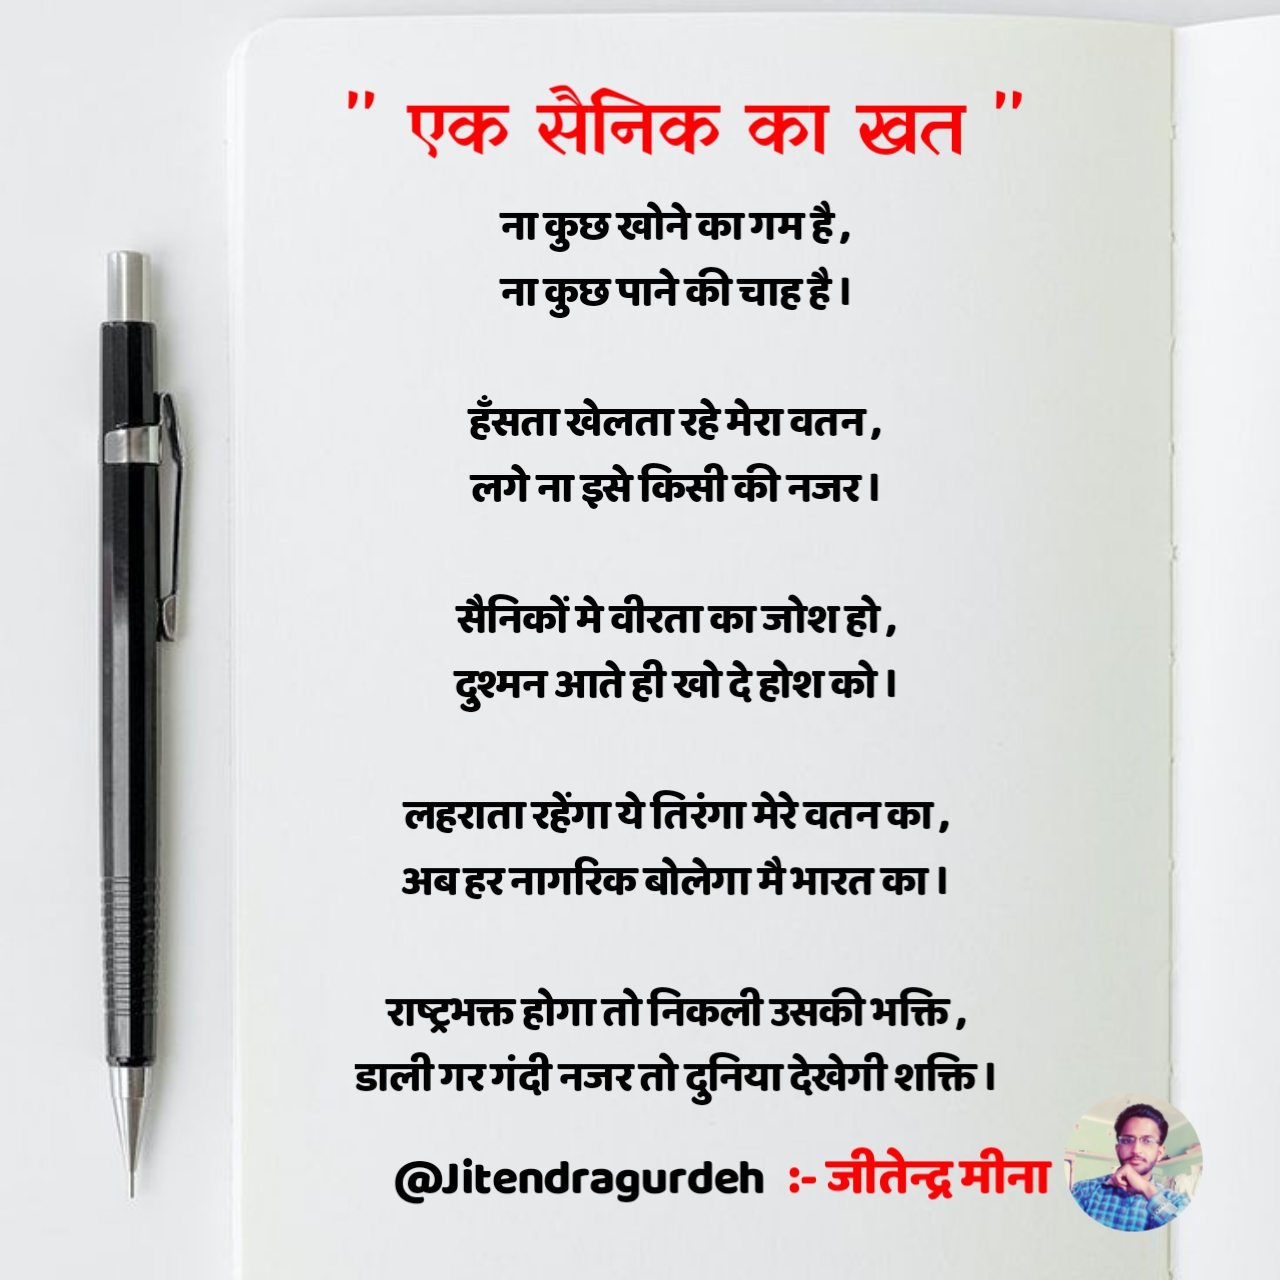 " एक सैनिक का खत "
ना कुछ खोने का गम है ,
ना कुछ पाने की चाह है ।
हँसता खेलता रहे मेरा वतन ,
लगे ना इसे किसी की नजर ।
सैनिकों मे वीरता का जोश हो ,
दुश्मन आते ही खो दे होश को ।
लहराता रहेंगा ये तिरंगा मेरे वतन का ,
अब हर नागरिक बोलेगा मै भारत का ।
राष्ट्रभक्त होगा तो निकली उसकी भक्ति ,
डाली गर गंदी नजर तो दुनिया देखेगी शक्ति ।
@Jitendragurdeh :- जीतेन्द्र मीना